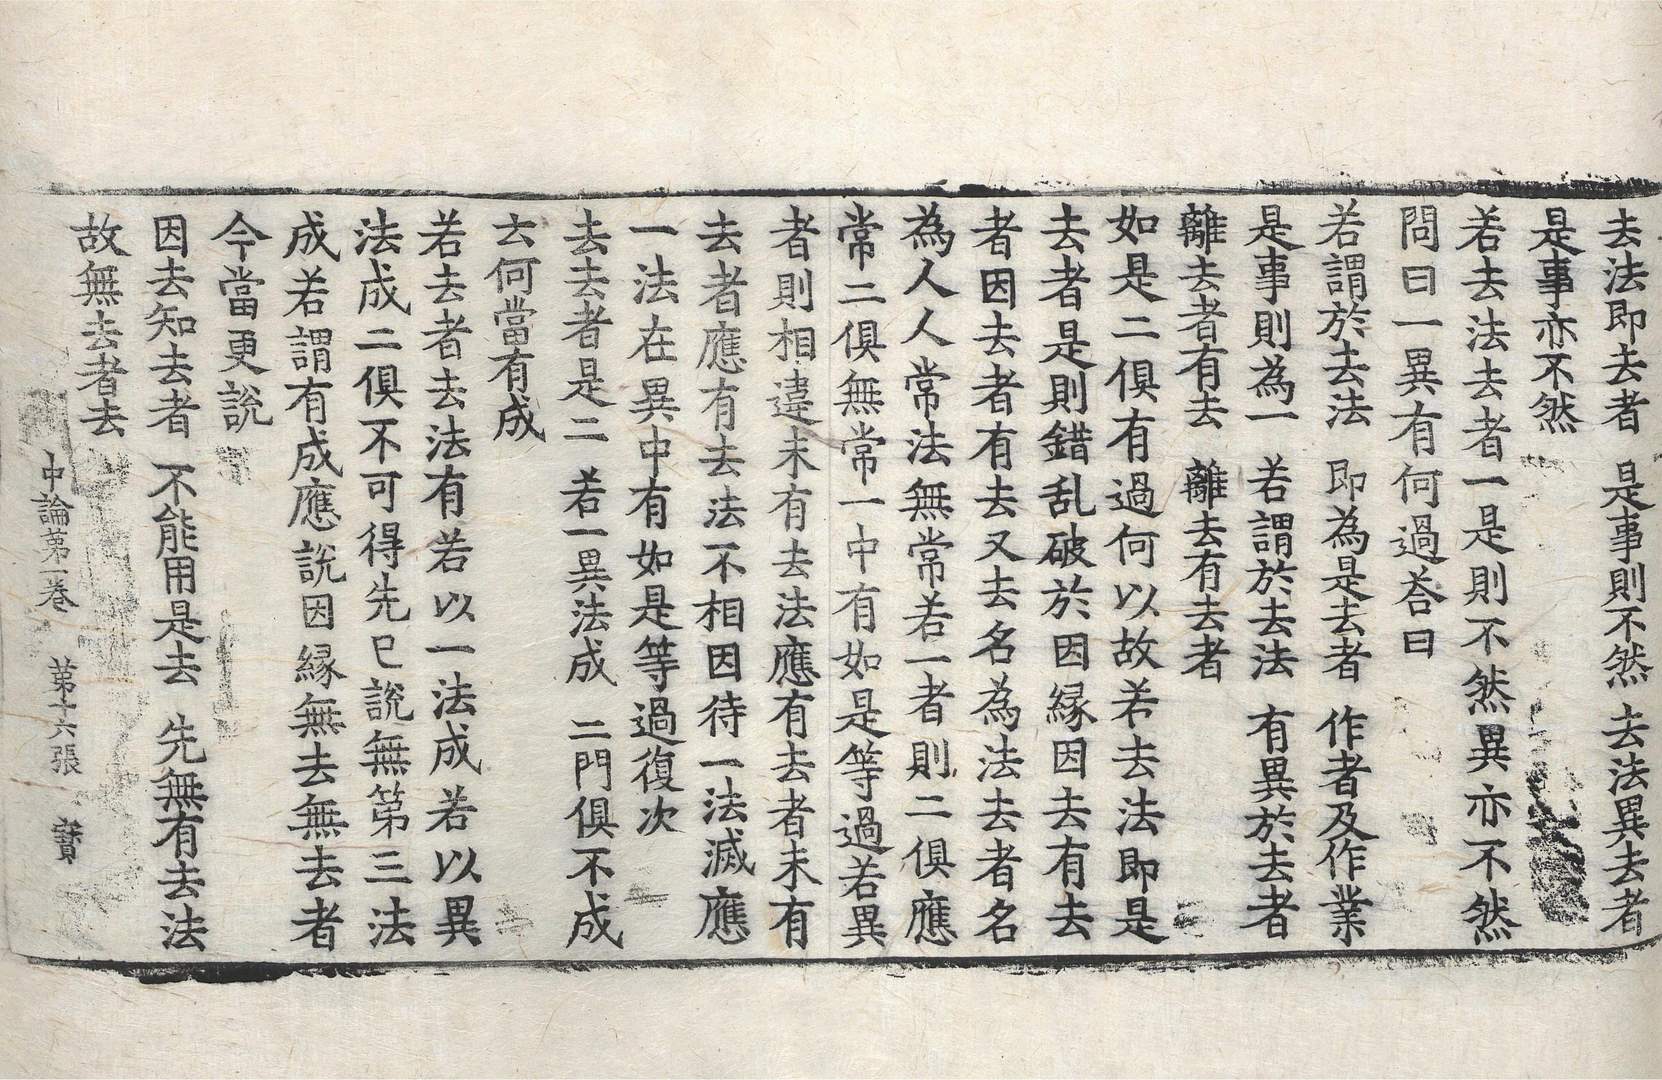 去法即去者 是事則不然 去法異去者
是事亦不然
若去法去者一是則不然異亦不然
問曰一異有何過荅曰
若謂於去法 即為是去者 作者及作業
是事則為一 若謂於去法 有異於去者
離去者有去 離去有去者
如是二俱有過何以故若去法即是
去者是則錯乱破於因緣因去有去
者因去者有去又去名為法去者名
為人人常法無常若一者則二俱應
常二俱無常一中有如是等過若異
者則相違未有去法應有去者未有
去者應有去法不相因待一法滅應
一法在異中有如是等過復次
去去者是二 若一異法成 二門俱不成
云何當有成
若去者去法有若以一法成若以異
法成二俱不可得先已說無第三法
成若謂有成應說因緣無去無去者
今當更說
因去知去者 不能用是去 先無有去法
故無去者去
中論第一卷 第十六張 寶